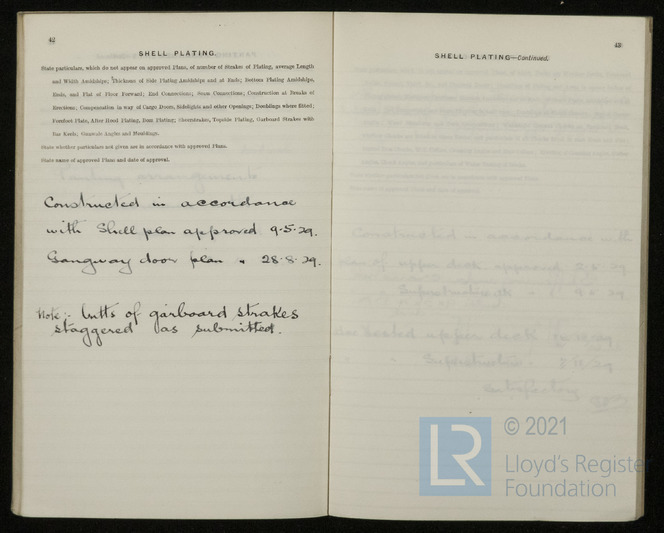 42
SHELL PLATING.
State particulars, which do not appear on approved Plans, of number of Strakes of Plating, average Length
and Width Amidships; Thickness of Side Plating Amidships and at Ends; Bottom Plating Amidships,
Ends, and Flat of Floor Forward; End Connections; Seam Connections; Construction at Breaks of
Erections; Compensation in way of Cargo Doors, Sidelights and other Openings; Doublings where fitted;
Forefoot Plate, After Hood Plating, Boss Plating; Sheerstrakes, Topside Plating, Garboard Strakes with
Bar Keels; Gunwale Angles and Mouldings.
State whether particulars not given are in accordance with approved Plans.
State name of approved Plans and date of approval.
Constructed in accordance
with Shell plan approved 9-5-29.
Gangway door plan " 28-8-29.
Note:- butts of garboard strakes
staggered as submitted.
43
SHELL PLATING—Continued.
Constructed in accordance with
plan of upper deck approved
Superstructure
upper deck
Superstructure
satisfactory
LR
© 2021
Lloyd's Register
Foundation